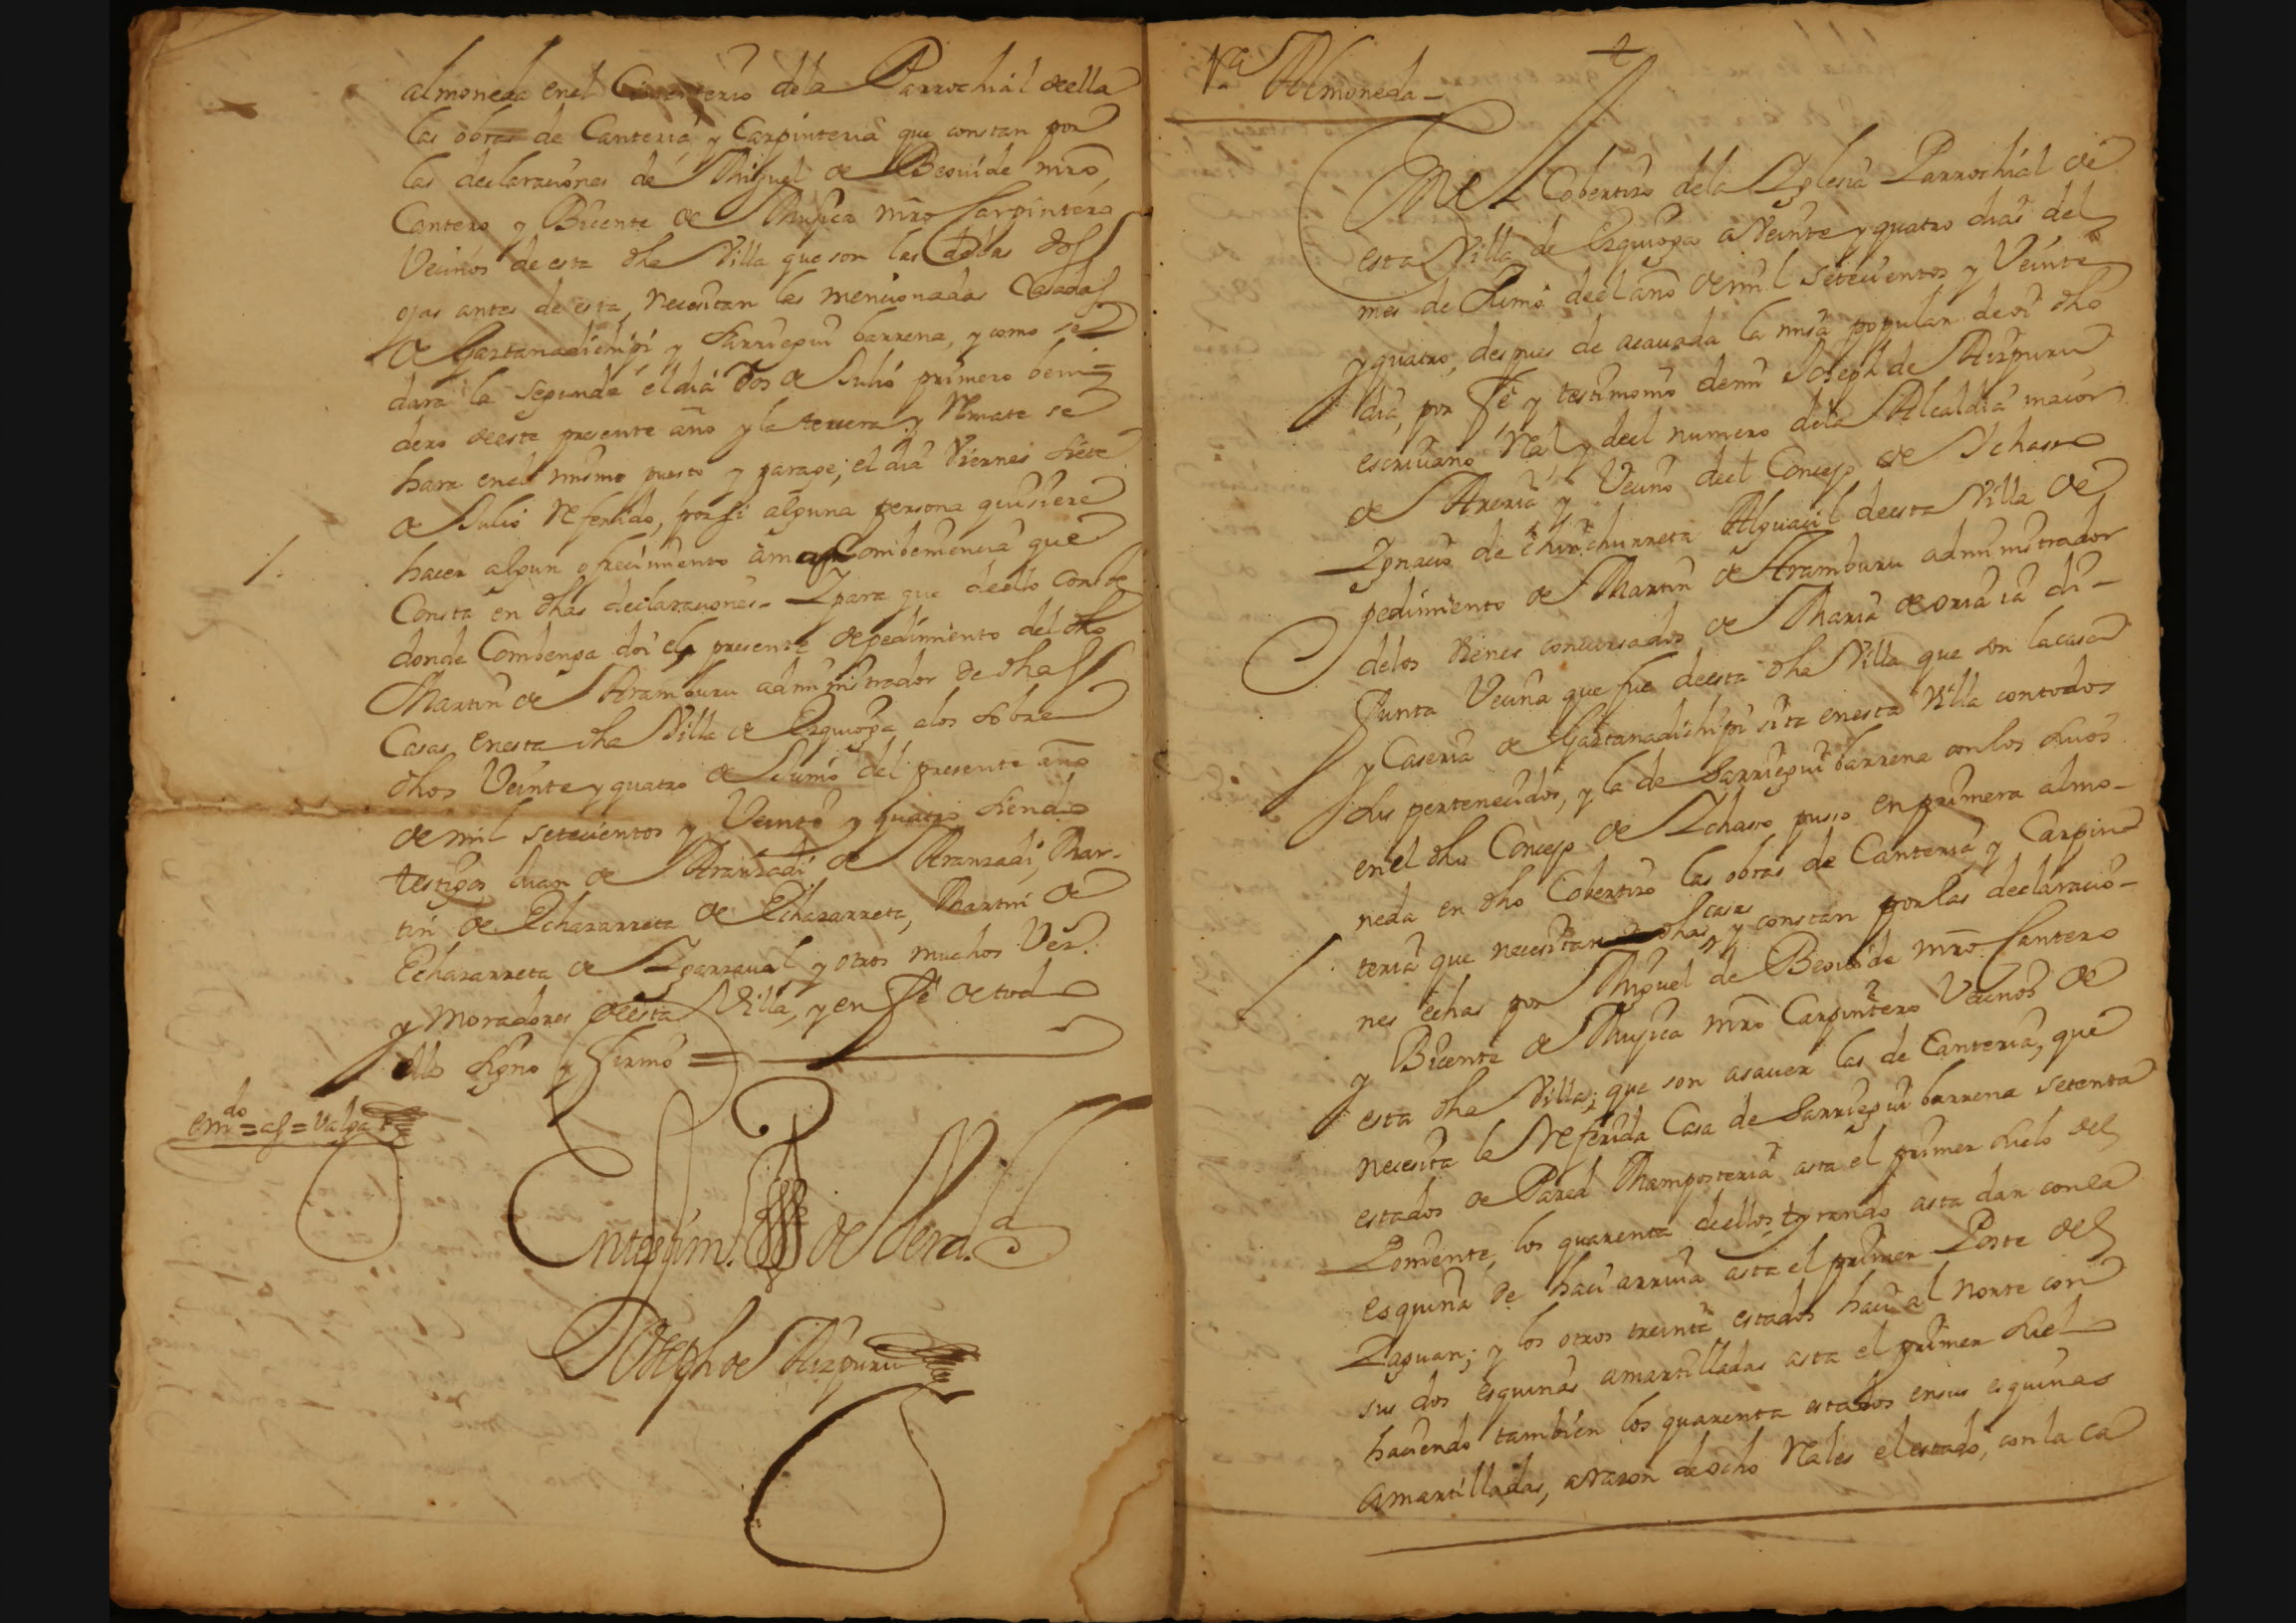 almoneda enel Cimenterio dela Parrochial deella
las obras de Canteria y Carpinteria que constan por
las declaraciones de Miguel de Beovide mro,
Cantero y Bicente de Mugica mro Carpintero
Vecinos de esta dha Villa que son las delas dos
ojas antes de esta, necesitan las mencionadas Casadas
de Gaztanadichipi y Sarriegui barrena, y como se
dara la segunda el dia dos de Julio primero beni=
dero deeste presente año y la tercera y Remate se
hara enel mismo puesto y parage; el dia Viernes siete
de Julio Referido, por si alguna persona quisiere
hacer algun ofrecimiento amas Combeniencia que
Consta en dhas declaraciones - Ipara que deello conste
donde Combenga doi el presente depedimiento del dho
Martin de Aramburu administrador de dhas
Casas, enesta dha Villa de Ezquioga, alos sobre
dhos Veinte y quatro de Junio del presente año
de mil setecientos y Veinte y quatro siendo
testigos Juan de Aranzadi de Aranzadi, Mar-
tin de Echazarreta de Echazarreta, Martin de
Echazarreta de Igarzaval y otros muchos Vez.
y Moradores deesta Villa, y en fe de todo
ello signo y firmo =
emdo = as = Valga
Entestim. de Verd.a
Joseph de Aizpuru
1.a Almoneda -
Enel Cobertizo dela Iglesia Parrochial de
esta Villa de Ezquioga a Veinte y quatro dias del
mes de Junio deel año de mil setecientos y Veinte
y quatro, despues de acavada la misa popular de oi dho
dia, por fe y testimonio de mi Joseph de Aizpuru
escrivano Real y deel numero dela Alcaldia maior
de Areria y Vecino deel Concejo de Ichaso
Ignacio de Chinchurreta Alguacil deesta Villa de
pedimiento de Martin de Aramburu administrador
delos Vienes concursados de Maria de oria ia di-
funta Vecina que fue deesta dha Villa que son lacasa
y Caseria de Gaztanadichipi sita enesta Villa contodos
sus pertenecidos, y la de Sarriegui barrena conlos suios
enel dho Concejo de Ichaso puso en primera almo-
neda en dho Cobertizo las obras de Canteria y Carpin
teria que necesitan dhas casas y constan por las declaracio-
nes echas por Miguel de Beovide mro Cantero
y Bicente de Mugica mro Carpintero Vecinos de
esta dha Villa; que son asaver las de Canteria, que
necesita la Referida Casa de Sarriegui barrena setenta
estados de Pared Mamposteria asta el primer suelo del
Poniente, los quarenta deellos, tyrando asta dar conla
esquina de hacia arriva asta el primer Poste del
Zaguan; y los otros treinta estados hacia el Norte con
sus dos esquinas amartilladas asta el primer suelo
haciendo tambien los quarenta estados ensus esquinas
amartilladas, arazon de ocho Rales el estado, conla ca